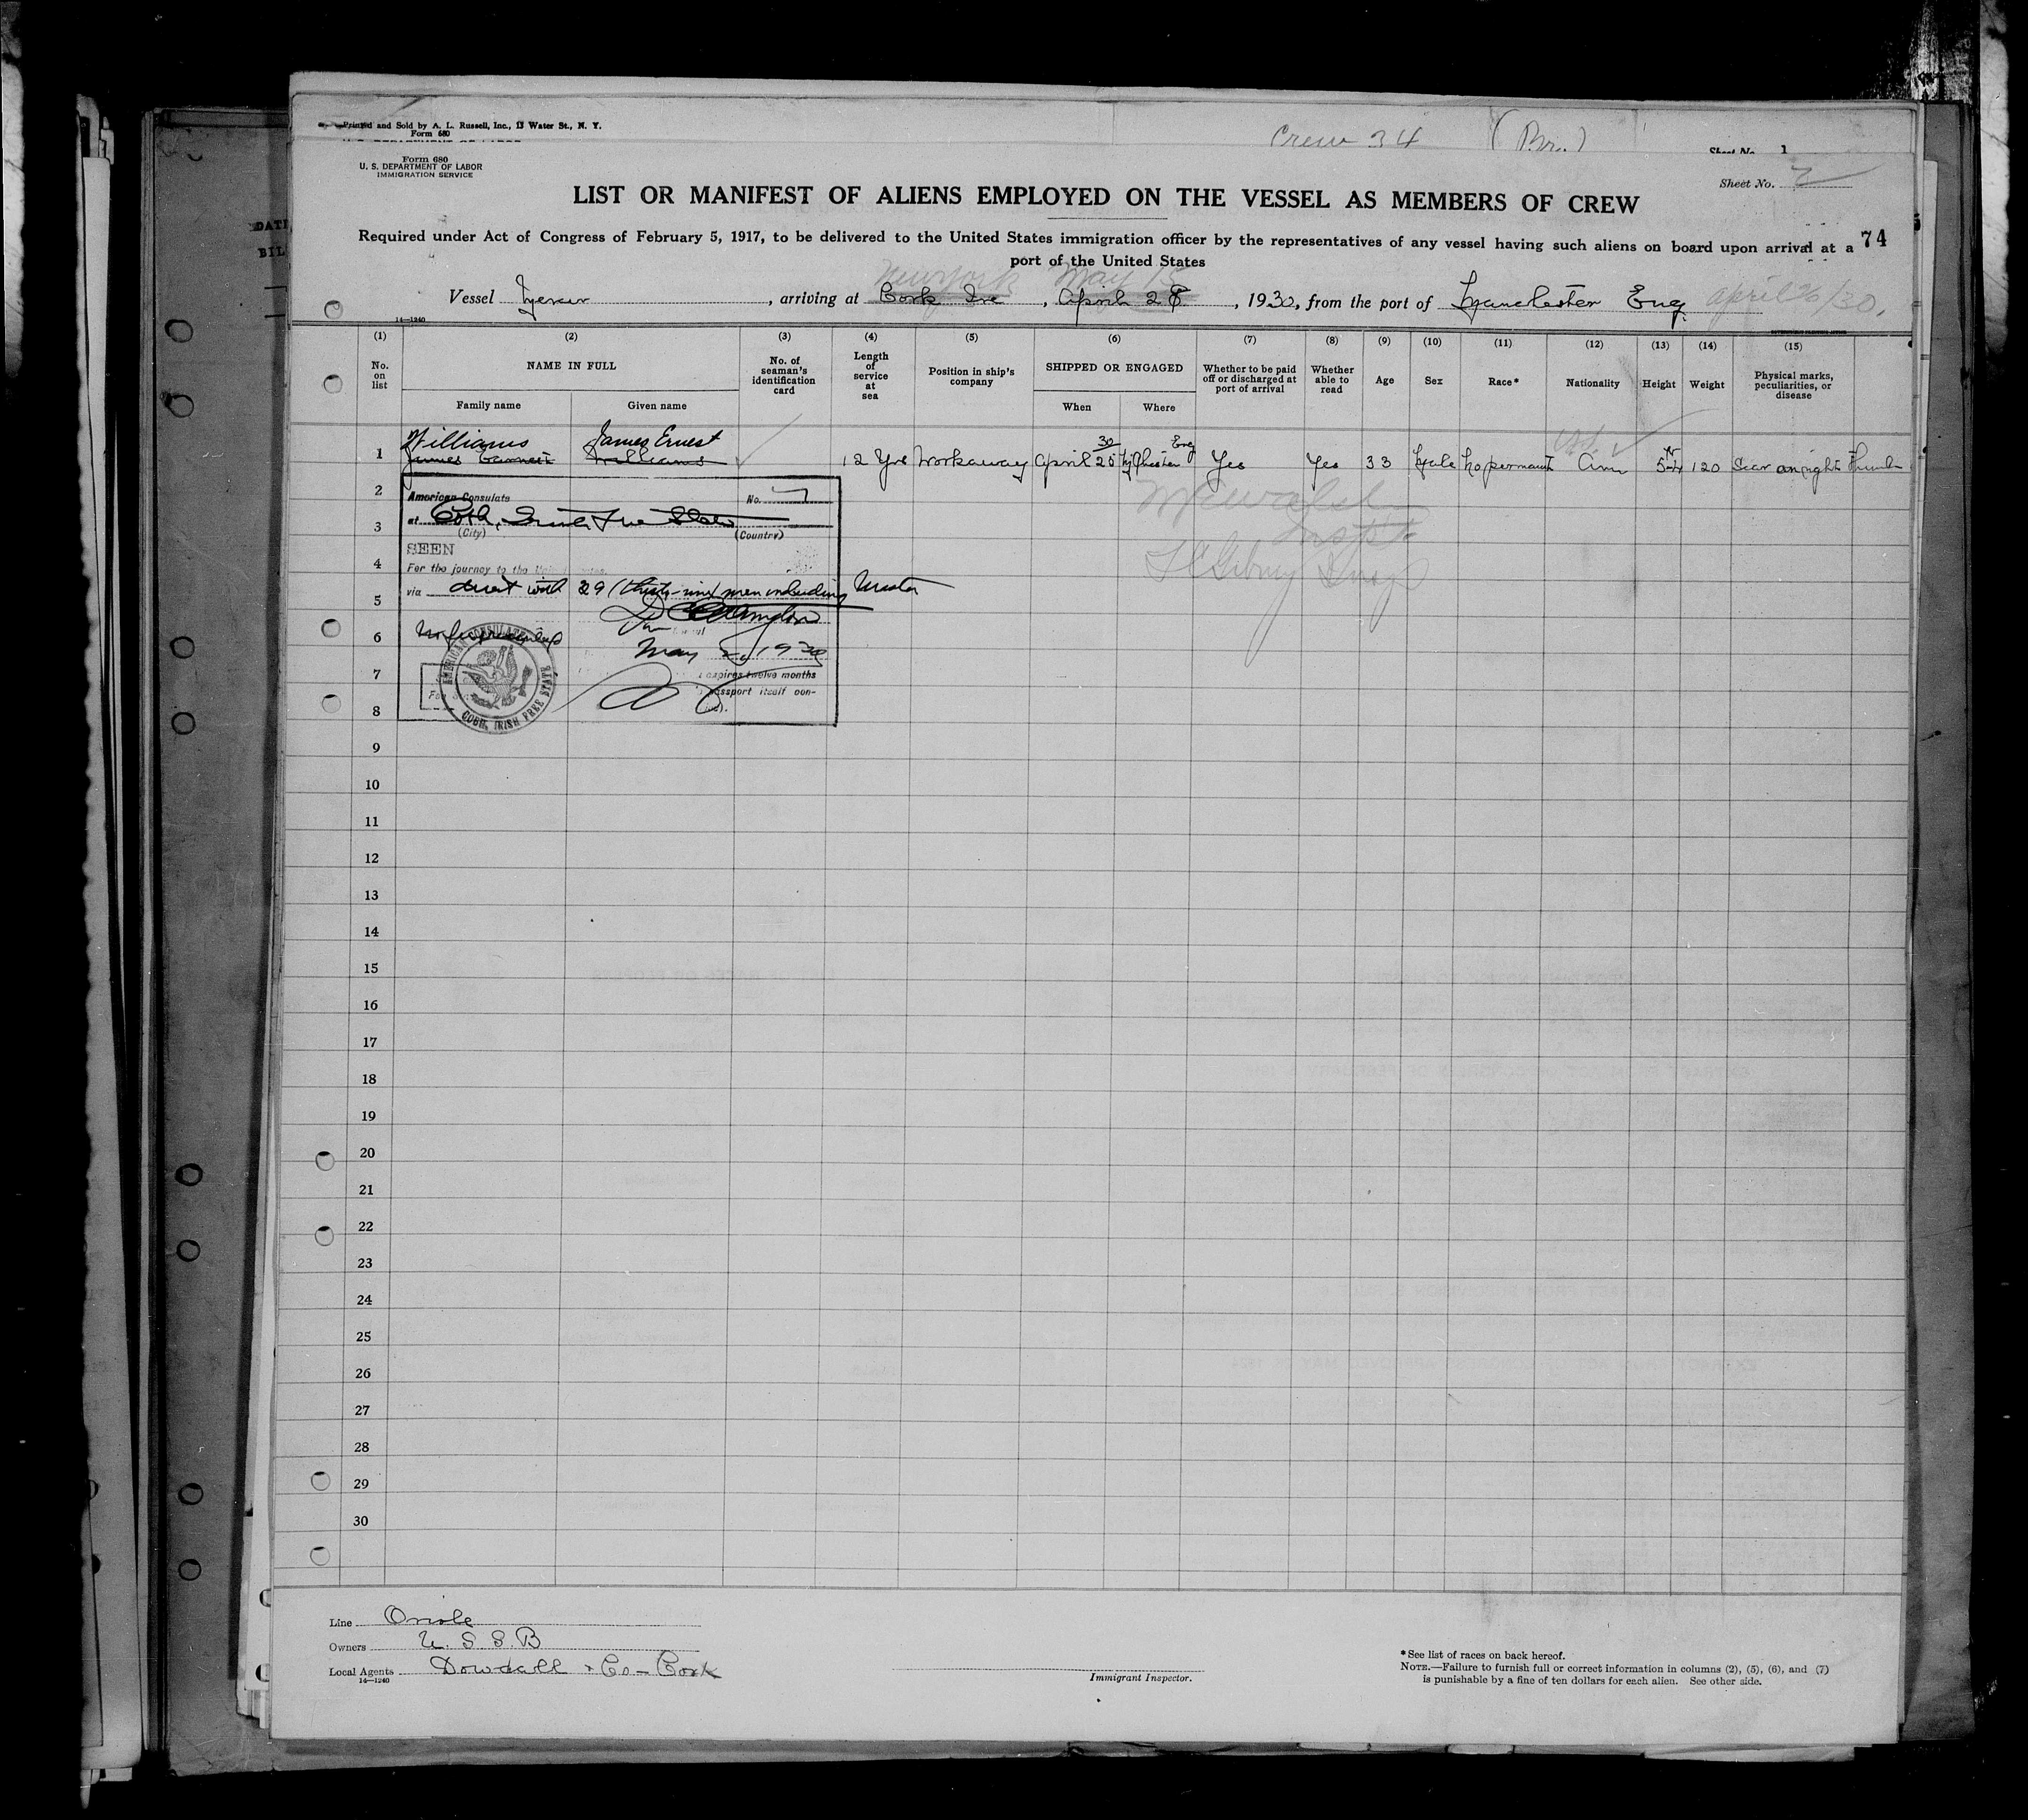 Printed and Sold by A. L. Russell, Inc., 13 Water St., N. Y.
Form 680
Crew 34 (Br.)
Sheet No. 1
Form 680
U. S. DEPARTMENT OF LABOR
IMMIGRATION SERVICE
Sheet No. 2
LIST OR MANIFEST OF ALIENS EMPLOYED ON THE VESSEL AS MEMBERS OF CREW
Required under Act of Congress of February 5, 1917, to be delivered to the United States immigration officer by the representatives of any vessel having such aliens on board upon arrival at a 74
port of the United States
New York May 15
Vessel , arriving at Cork Ire , April 28 , 1930, from the port of Manchester Eng. April 26/30.
14—1240
(1) (2) (3) (4) (5) (6) (7) (8) (9) (10) (11) (12) (13) (14) (15)
No. on list NAME IN FULL No. of seaman's identification card Length of service at sea Position in ship's company SHIPPED OR ENGAGED Whether to be paid off or discharged at port of arrival Whether able to read Age Sex Race* Nationality Height Weight Physical marks, peculiarities, or disease
Family name Given name When Where
Williams James Ernest 30 Eng
1 James Williams 12 Yrs Workaway April 25 M/Chester Yes Yes 33 Male Am 120 Scar on right Thumb
2
American Consulate No.
3
at Cobh, Irish Free State
(City) (Country)
SEEN
4
For the journey to the United States
via direct with 39 (thirty-nine) men including Master
5
6
No fee prescribed
May 2, 1930
7
expires twelve months
passport itself con-
AMERICAN CONSULATE
COBH, IRISH FREE STATE
8
9
10
11
12
13
14
15
16
17
18
19
20
21
22
23
24
25
26
27
28
29
30
Line Oriole
Owners U. S. S. B
Local Agents Dowdall & Co - Cork
14—1240
Immigrant Inspector.
*See list of races on back hereof.
NOTE.—Failure to furnish full or correct information in columns (2), (5), (6), and (7)
is punishable by a fine of ten dollars for each alien. See other side.